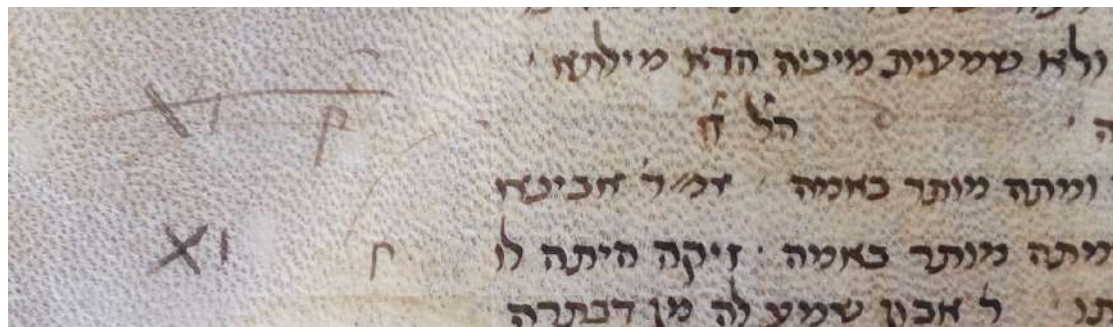 ולא שמעית מיניה הדא מילתא
הל ח
ומתה מותר באמה אמ״ר אבינא
מתה מותר באמה זיקה היתה לו
ר אבון שמע לה מן דבתרה